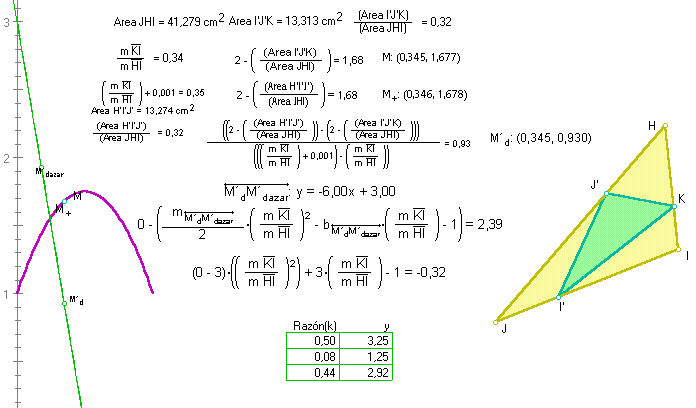 Area JHI = 41,279 cm² Area I'J'K = 13,313 cm² (Area I'J'K) / (Area JHI) = 0,32
m KI / m HI = 0,34
2 - ( (Area I'J'K) / (Area JHI) ) = 1,68
M: (0,345, 1,677)
( m KI / m HI ) + 0,001 = 0,35
2 - ( (Area H'I'J') / (Area JHI) ) = 1,68
M+: (0,346, 1,678)
Area H'I'J' = 13,274 cm²
(Area H'I'J') / (Area JHI) = 0,32
((2 - ( (Area H'I'J') / (Area JHI) )) - (2 - ( (Area I'J'K) / (Area JHI) ))) / ((( m KI / m HI ) + 0,001) - ( m KI / m HI )) = 0,93
M´d: (0,345, 0,930)
M´dM´dazar: y = -6,00x + 3,00
0 - ( m M´dM´dazar / 2 · ( m KI / m HI )² - b M´dM´dazar · ( m KI / m HI ) - 1 ) = 2,39
(0 - 3)·(( m KI / m HI )²) + 3·( m KI / m HI ) - 1 = -0,32
Razón(k) y
0,50 3,25
0,08 1,25
0,44 2,92
3
2
1
M´dazar
M
M+
M´d
H
J'
K
I
I'
J